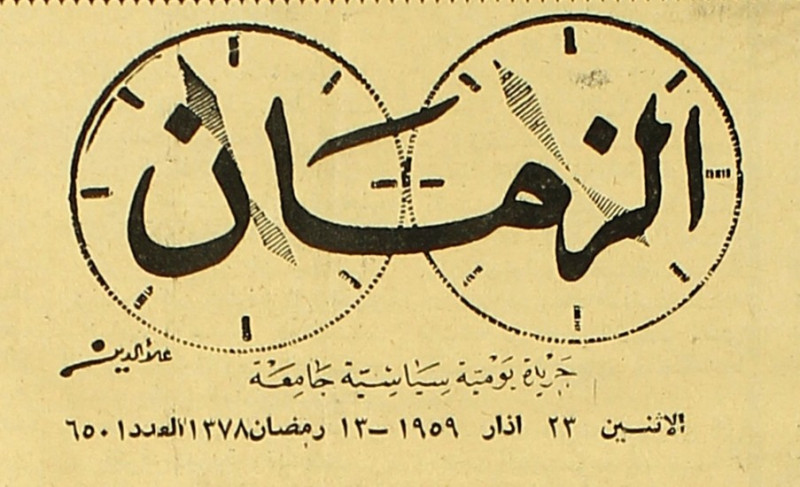 الزمان
جريدة يومية سياسية جامعة
علاء الدين
الاثنين ٢٣ اذار ١٩٥٩ - ١٣ رمضان ١٣٧٨ العدد ٦٥٠١